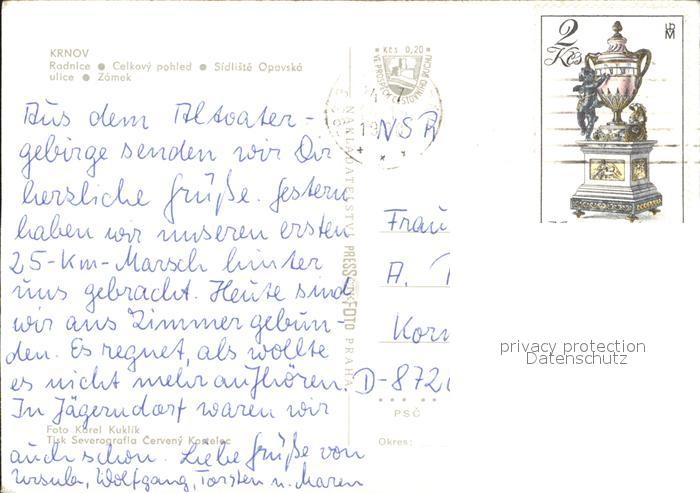 KRNOV
Radnice ● Celkový pohled ● Sídliště Opavská
ulice ● Zámek
Aus dem Altvater-
gebirge senden wir Dir
herzliche Grüße. Gestern
haben wir unseren ersten
25-Km-Marsch hinter
uns gebracht. Heute sind
wir ans Zimmer gebun-
den. Es regnet, als wollte
es nicht mehr aufhören.
In Jägerndorf waren wir
auch schon. Liebe Grüße von
Ursula, Wolfgang, Torsten u. Maren
Foto Karel Kuklík
Tisk Severografia Červený Kostelec
NAKLADATELSTVÍ PRESSFOTO PRAHA
Kčs 0,20
2
Kčs
NSR
Frau
A.
Korn
D-872
PSČ
Okres:
privacy protection
Datenschutz